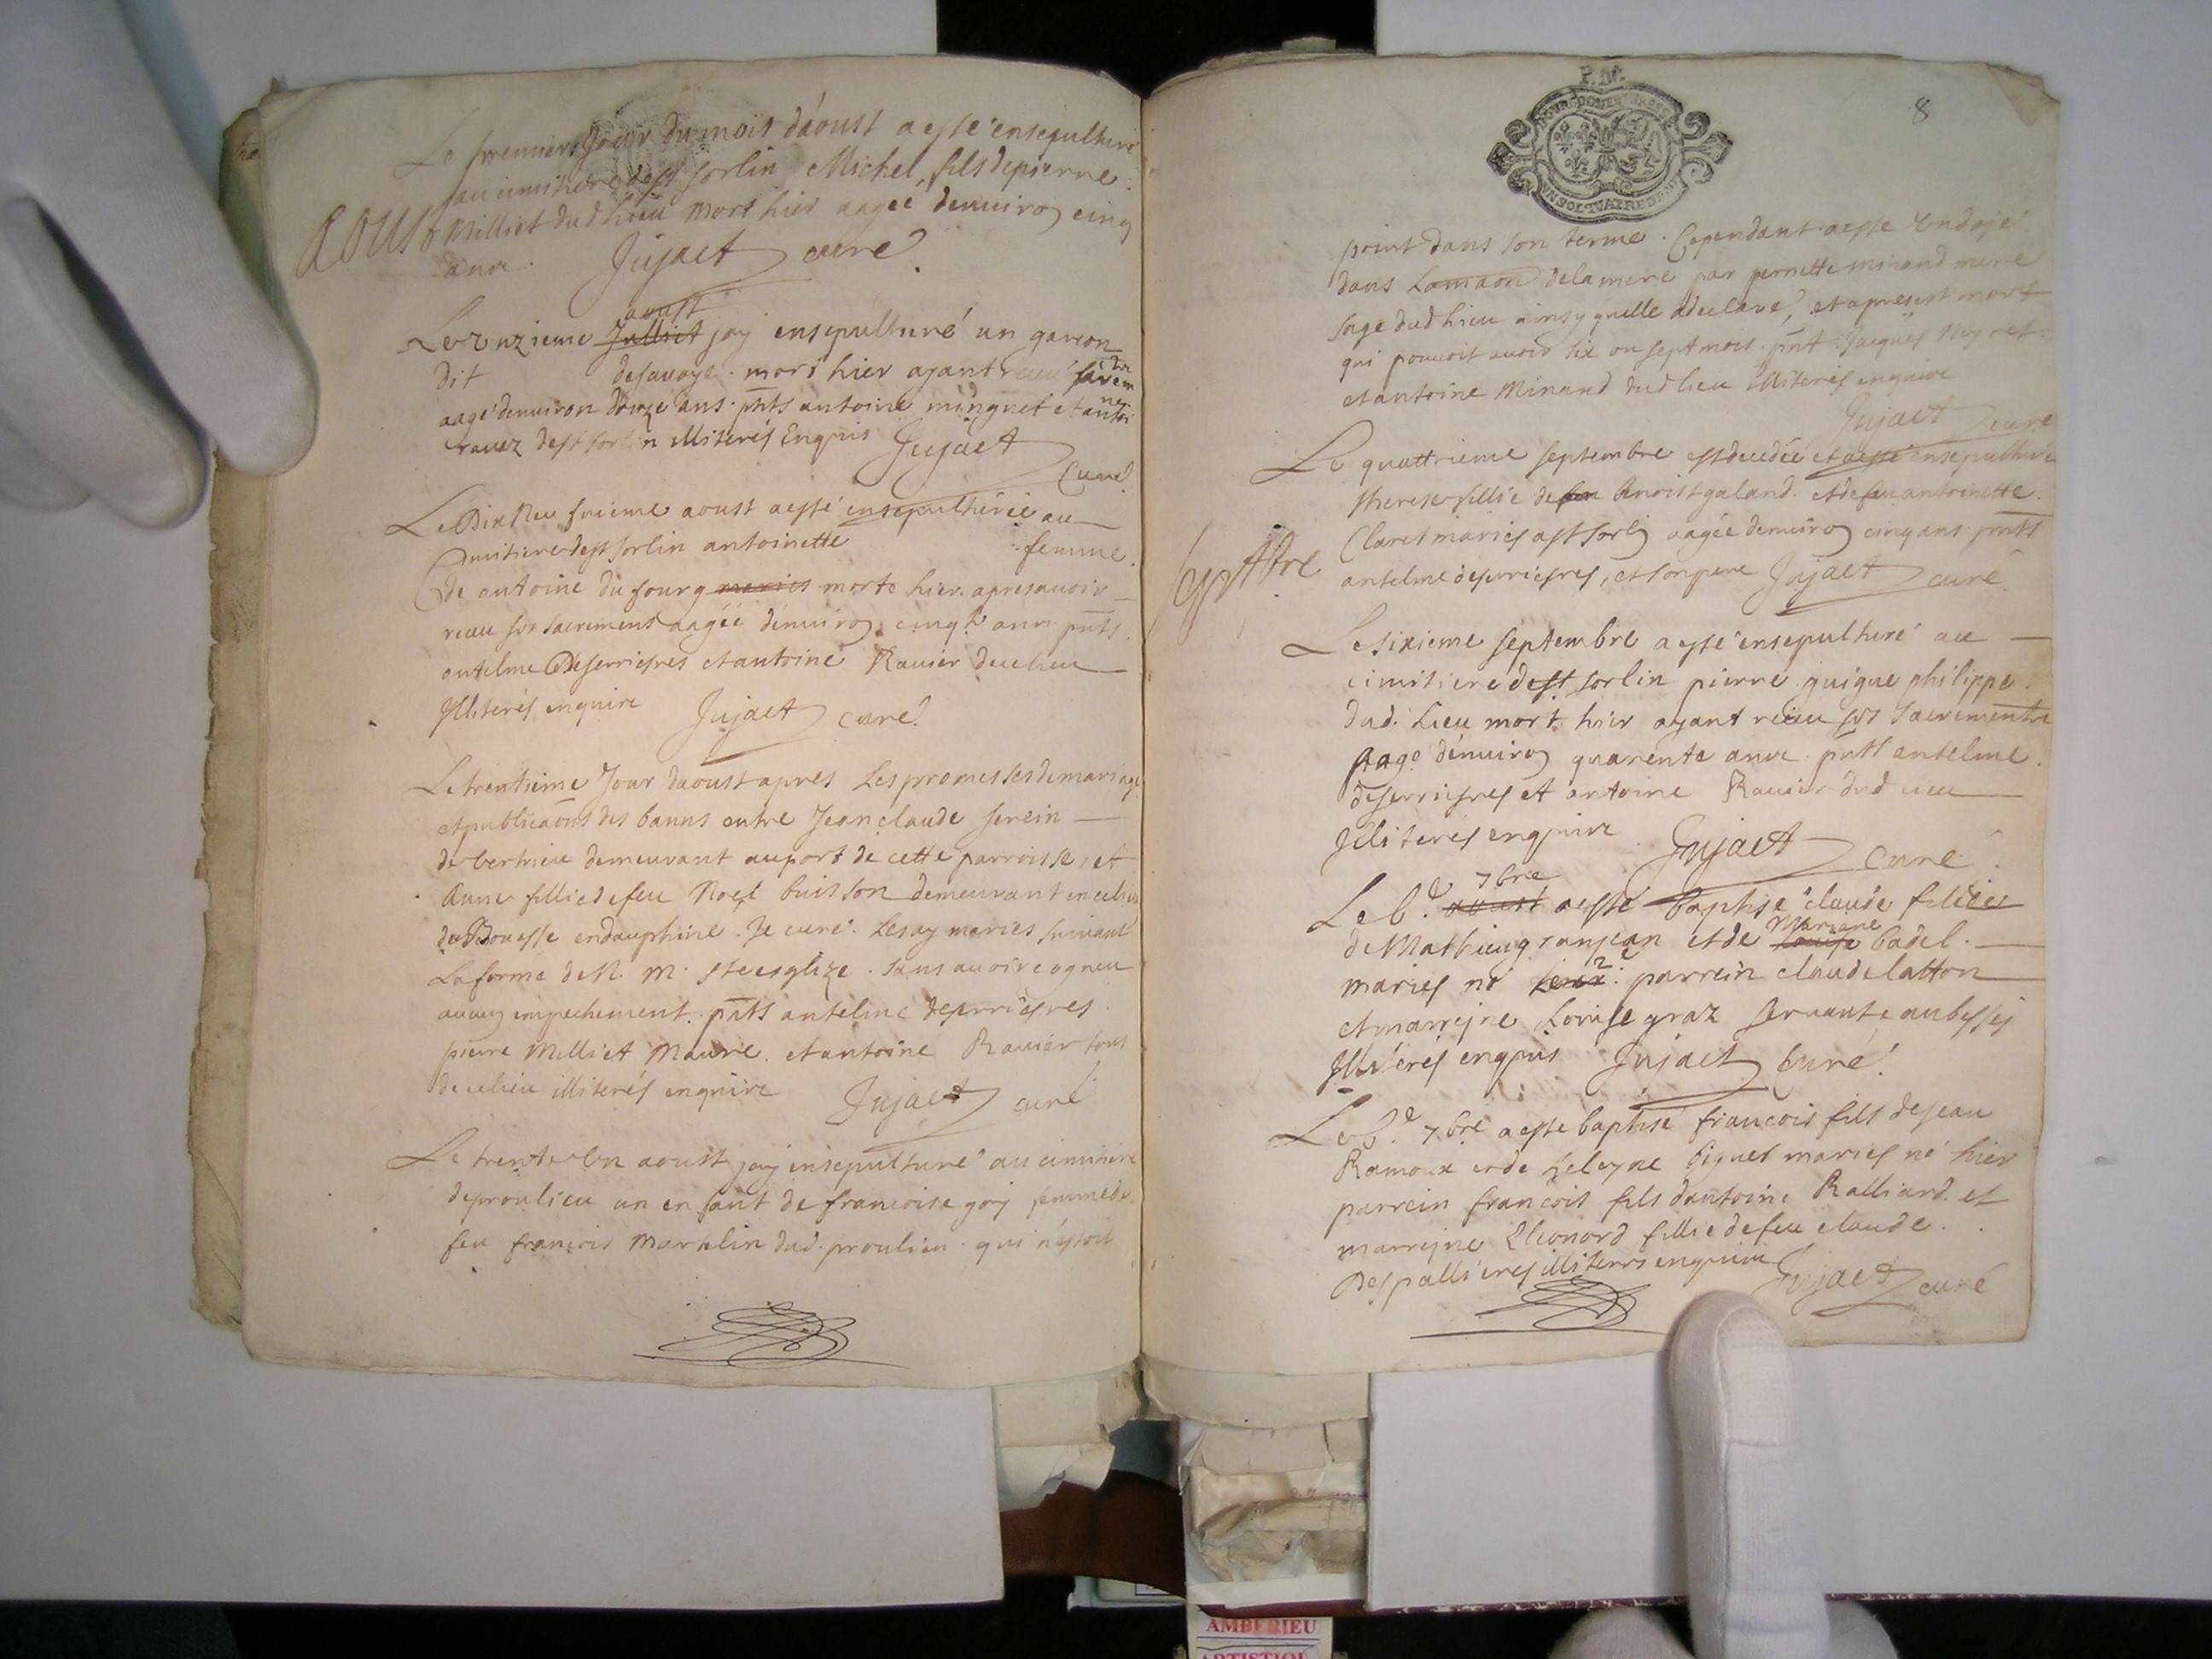 Le premier Jour du mois d'aoust a esté ensepulturé
au cimitiere de st sorlin Michel, fils de pierre
Milliet dud lieu mort hier aagéé denviron cinq
aoust
anne. Jujaet curé
aoust
Le onzieme Julliet jay ensepulturé un garcon
dit de savoye. mort hier ayant receu
aagé denviron douze ans. pnts antoine minguet et antoi
ne
ravez de st sorlin illiterés Enquis Jujaet
Curé
Le Dix Neufvieme aoust a esté ensepulturée au
Cimitiere de st sorlin antoinette femme
de antoine du fourg maries morte hier apres avoir
receu ses sacrements aagéé denviron cinq.te ans pnts
antelme Deserriesres et antoine Ravier de ce lieu
Illiterés enquire Jujaet curé
Le trentieme Jour daoust apres Les promesses de mariage
et publicaons des banns entre Jean claude serein
de vertrieu demeurant au port de cette parroisse, et
Anne fillie de feu Noel buisson demeurant en ce lieu
en dauphine. Je curé. Les ay mariés suivant
La forme de N. M. Ste esglize. sans avoir cogneu
aucun empechement. pnts antelme deserriesres
pierre Milliet Maure. et antoine Ravier tous
de ce lieu illiterés enquire Jujaet curé
Le trente Un aoust jay ensepulturé au cimitiere
de proulieu un enfant de francoise goy femme de
feu francois Marhlin dud. proulieu. qui n'estoit
8
point dans son terme. Cependant a esté Ondojé
dans La maon de la mere par pernette minand mere
sage dud lieu ainsy quelle a declare, et apres est mort
qui pouvoit avoir six ou sept mois. pnt. Jacques Neyret
et antoine Minand dud lieu illiterés enquire
Jujaet curé
Le quattrieme septembre est decedée et a esté ensepulturée
therese fillie de feu Benoist galand. et de feu antoinette
Claret mariés a st sorlin aagée denviron cinq ans pnts
7ptbre
antelme deserriesres, et son pere Jujaet curé
Le sixieme septembre a esté ensepulturé au
cimitiere de st sorlin pierre guigue philippe
dud. Lieu mort hier ayant receu ses Sacrements
Aagé denviron quarente anne pnts antelme
deserriesres et antoine Ravier dud lieu
Illiterés enquire Jujaet Curé
7bre
Le 6.e aoust a esté baptisé claude fillie
Mariane
de Mathieu granjean et de Louise badel.
mariés né hier. parrein claude latton
et marrejne Louise graz servante
Illiterés enquis Jujaet Curé
Le 6.e 7.bre a este baptisé francois fils de jean
Ramoux et de heleyne biguet mariés né hier
parrein francois fils dantoine Ralliard. et
marrejne Eleonord fillie de feu claude.
Despallieres illiteres enquire Jujaet curé
AMBERIEU